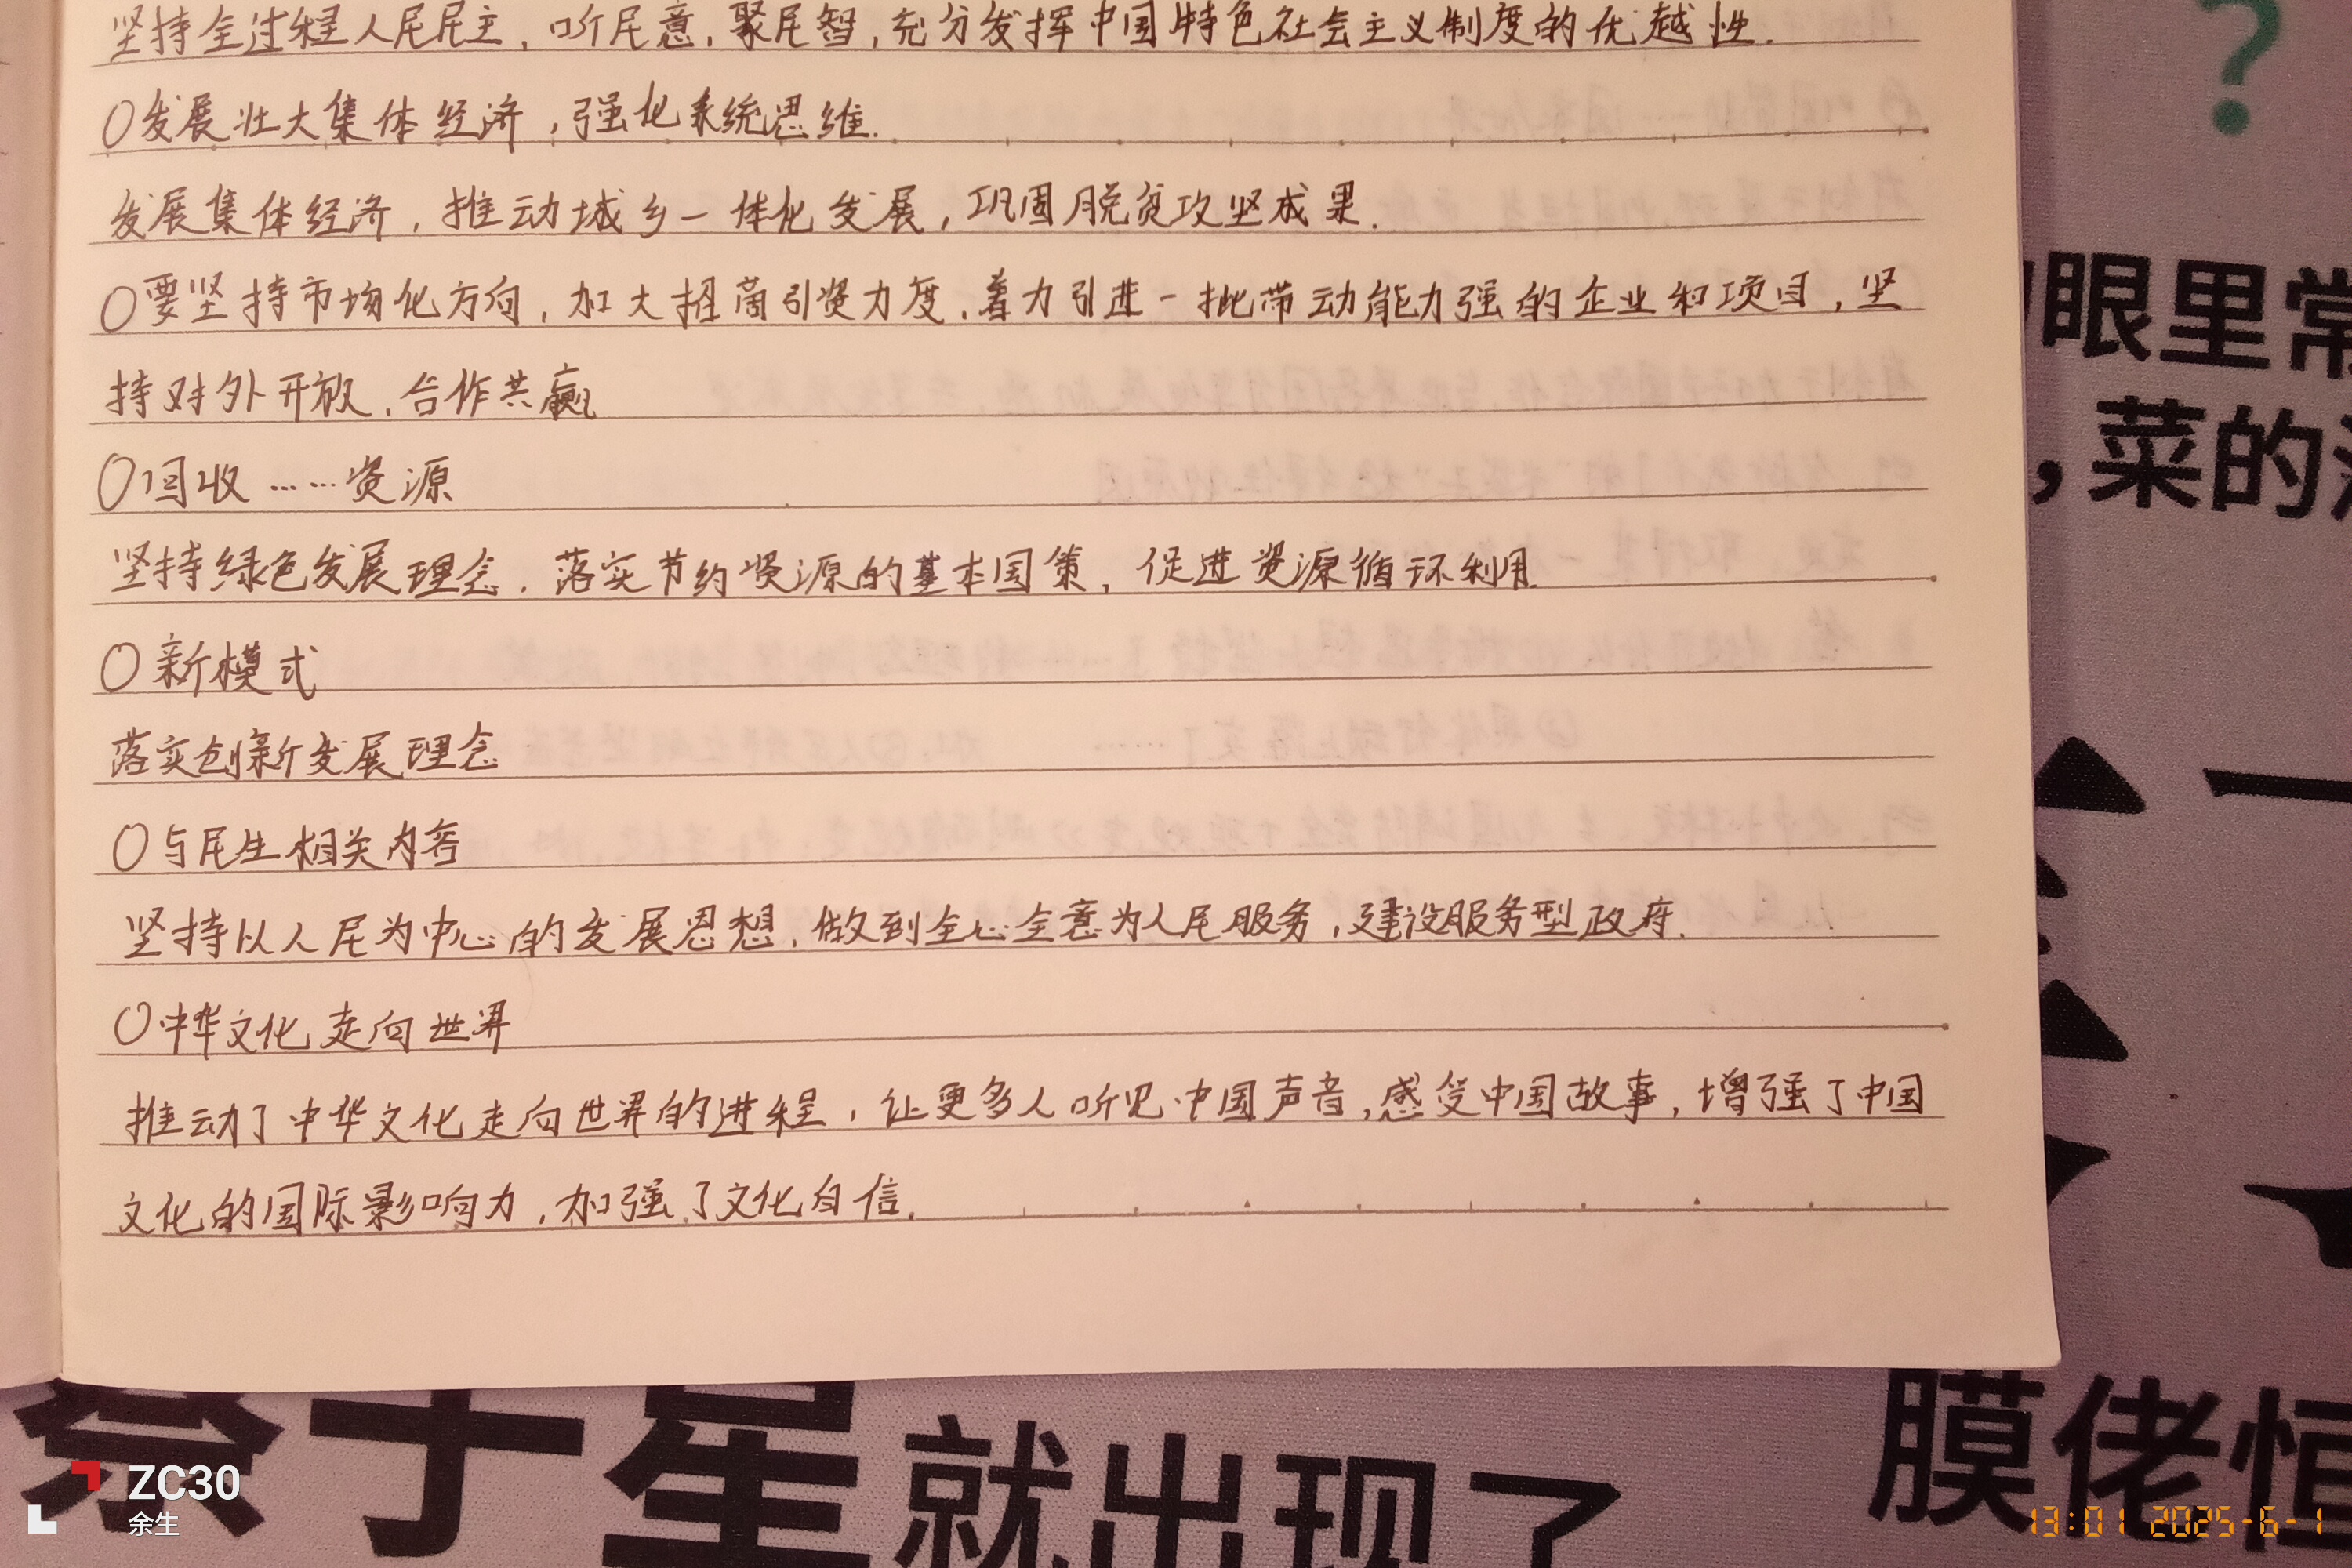 坚持全过程人民民主，听民意，聚民智，充分发挥中国特色社会主义制度的优越性.
○发展壮大集体经济，强化系统思维.
发展集体经济，推动城乡一体化发展，巩固脱贫攻坚成果.
○要坚持市场化方向，加大招商引资力度，着力引进一批带动能力强的企业和项目，坚
持对外开放，合作共赢
○回收……资源
坚持绿色发展理念，落实节约资源的基本国策，促进资源循环利用.
○新模式
落实创新发展理念
○与民生相关内容
坚持以人民为中心的发展思想，做到全心全意为人民服务，建设服务型政府.
○中华文化走向世界
推动了中华文化走向世界的进程，让更多人听见中国声音，感受中国故事，增强了中国
文化的国际影响力，加强了文化自信.
?
眼里常
，菜的
就出现了
膜佬恒
ZC30
余生
13:01 2025-6-1